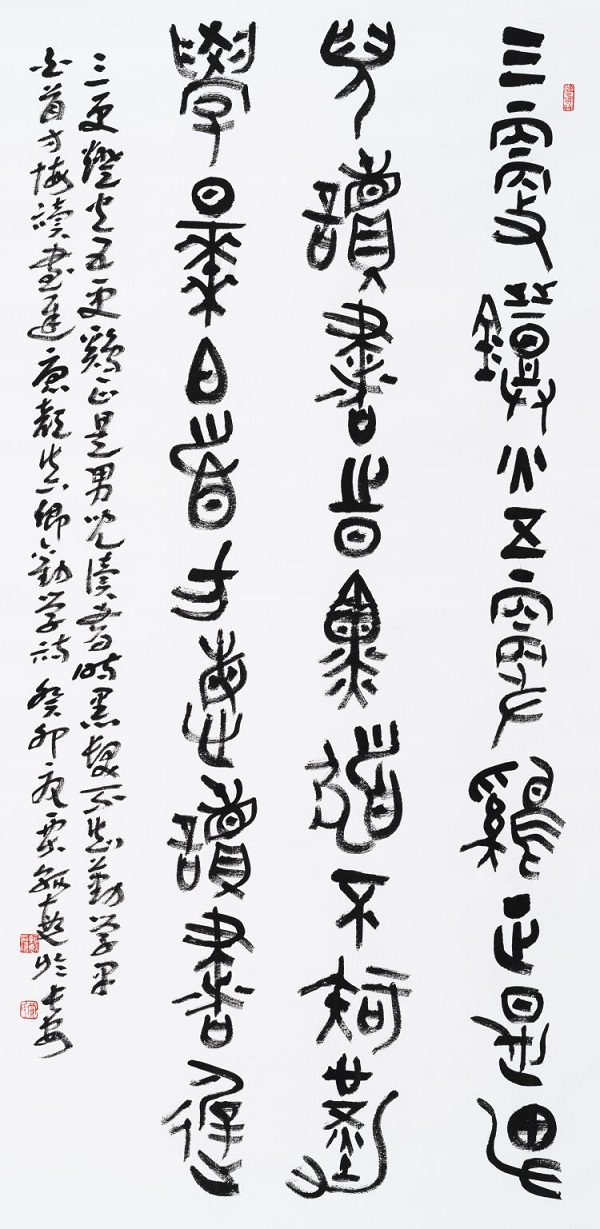 三更鐙火五更鷄正是男
兒讀書時黑髮不知勤
學早白首方悔讀書遲
三更鐙火五更鷄正是男兒读書時黑髮不知勤学早
白首方悔读書遲唐顏真卿勸学詩癸卯於長安